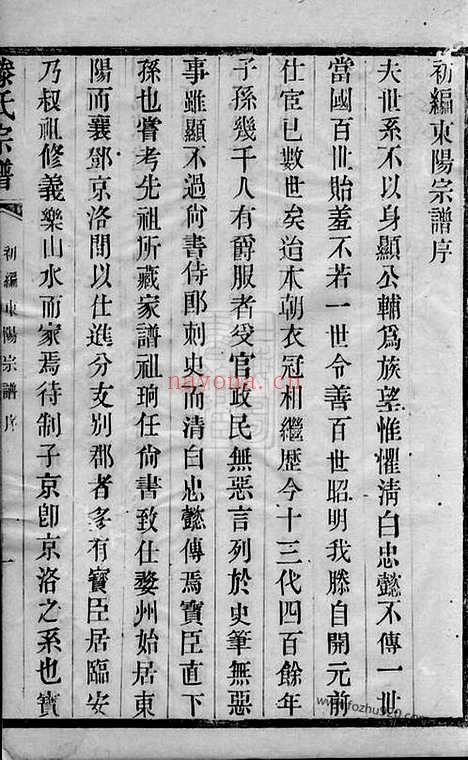 初編東陽宗譜序
夫世系不以身顯公輔爲族望惟懼淸白忠懿不傳一世
當國百世貽羞不若一世令善百世昭明我滕自開元前
仕宦已數世矣迨本朝衣冠相繼歷今十三代四百餘年
子孫幾千人有爵服者受官政民無惡言列於史筆無惡
事雖顯不過尚書侍郎刺史而淸白忠懿傳焉寶臣直下
孫也嘗考先祖所藏家譜祖珦任尚書致仕婺州始居東
陽而襄鄧京洛間以仕進分支別郡者多有寶臣居臨安
乃叔祖修義樂山水而家焉待制子京卽京洛之系也寶
滕氏宗譜
初編東陽宗譜序
一
nayona.cn
www.fozhu920.com